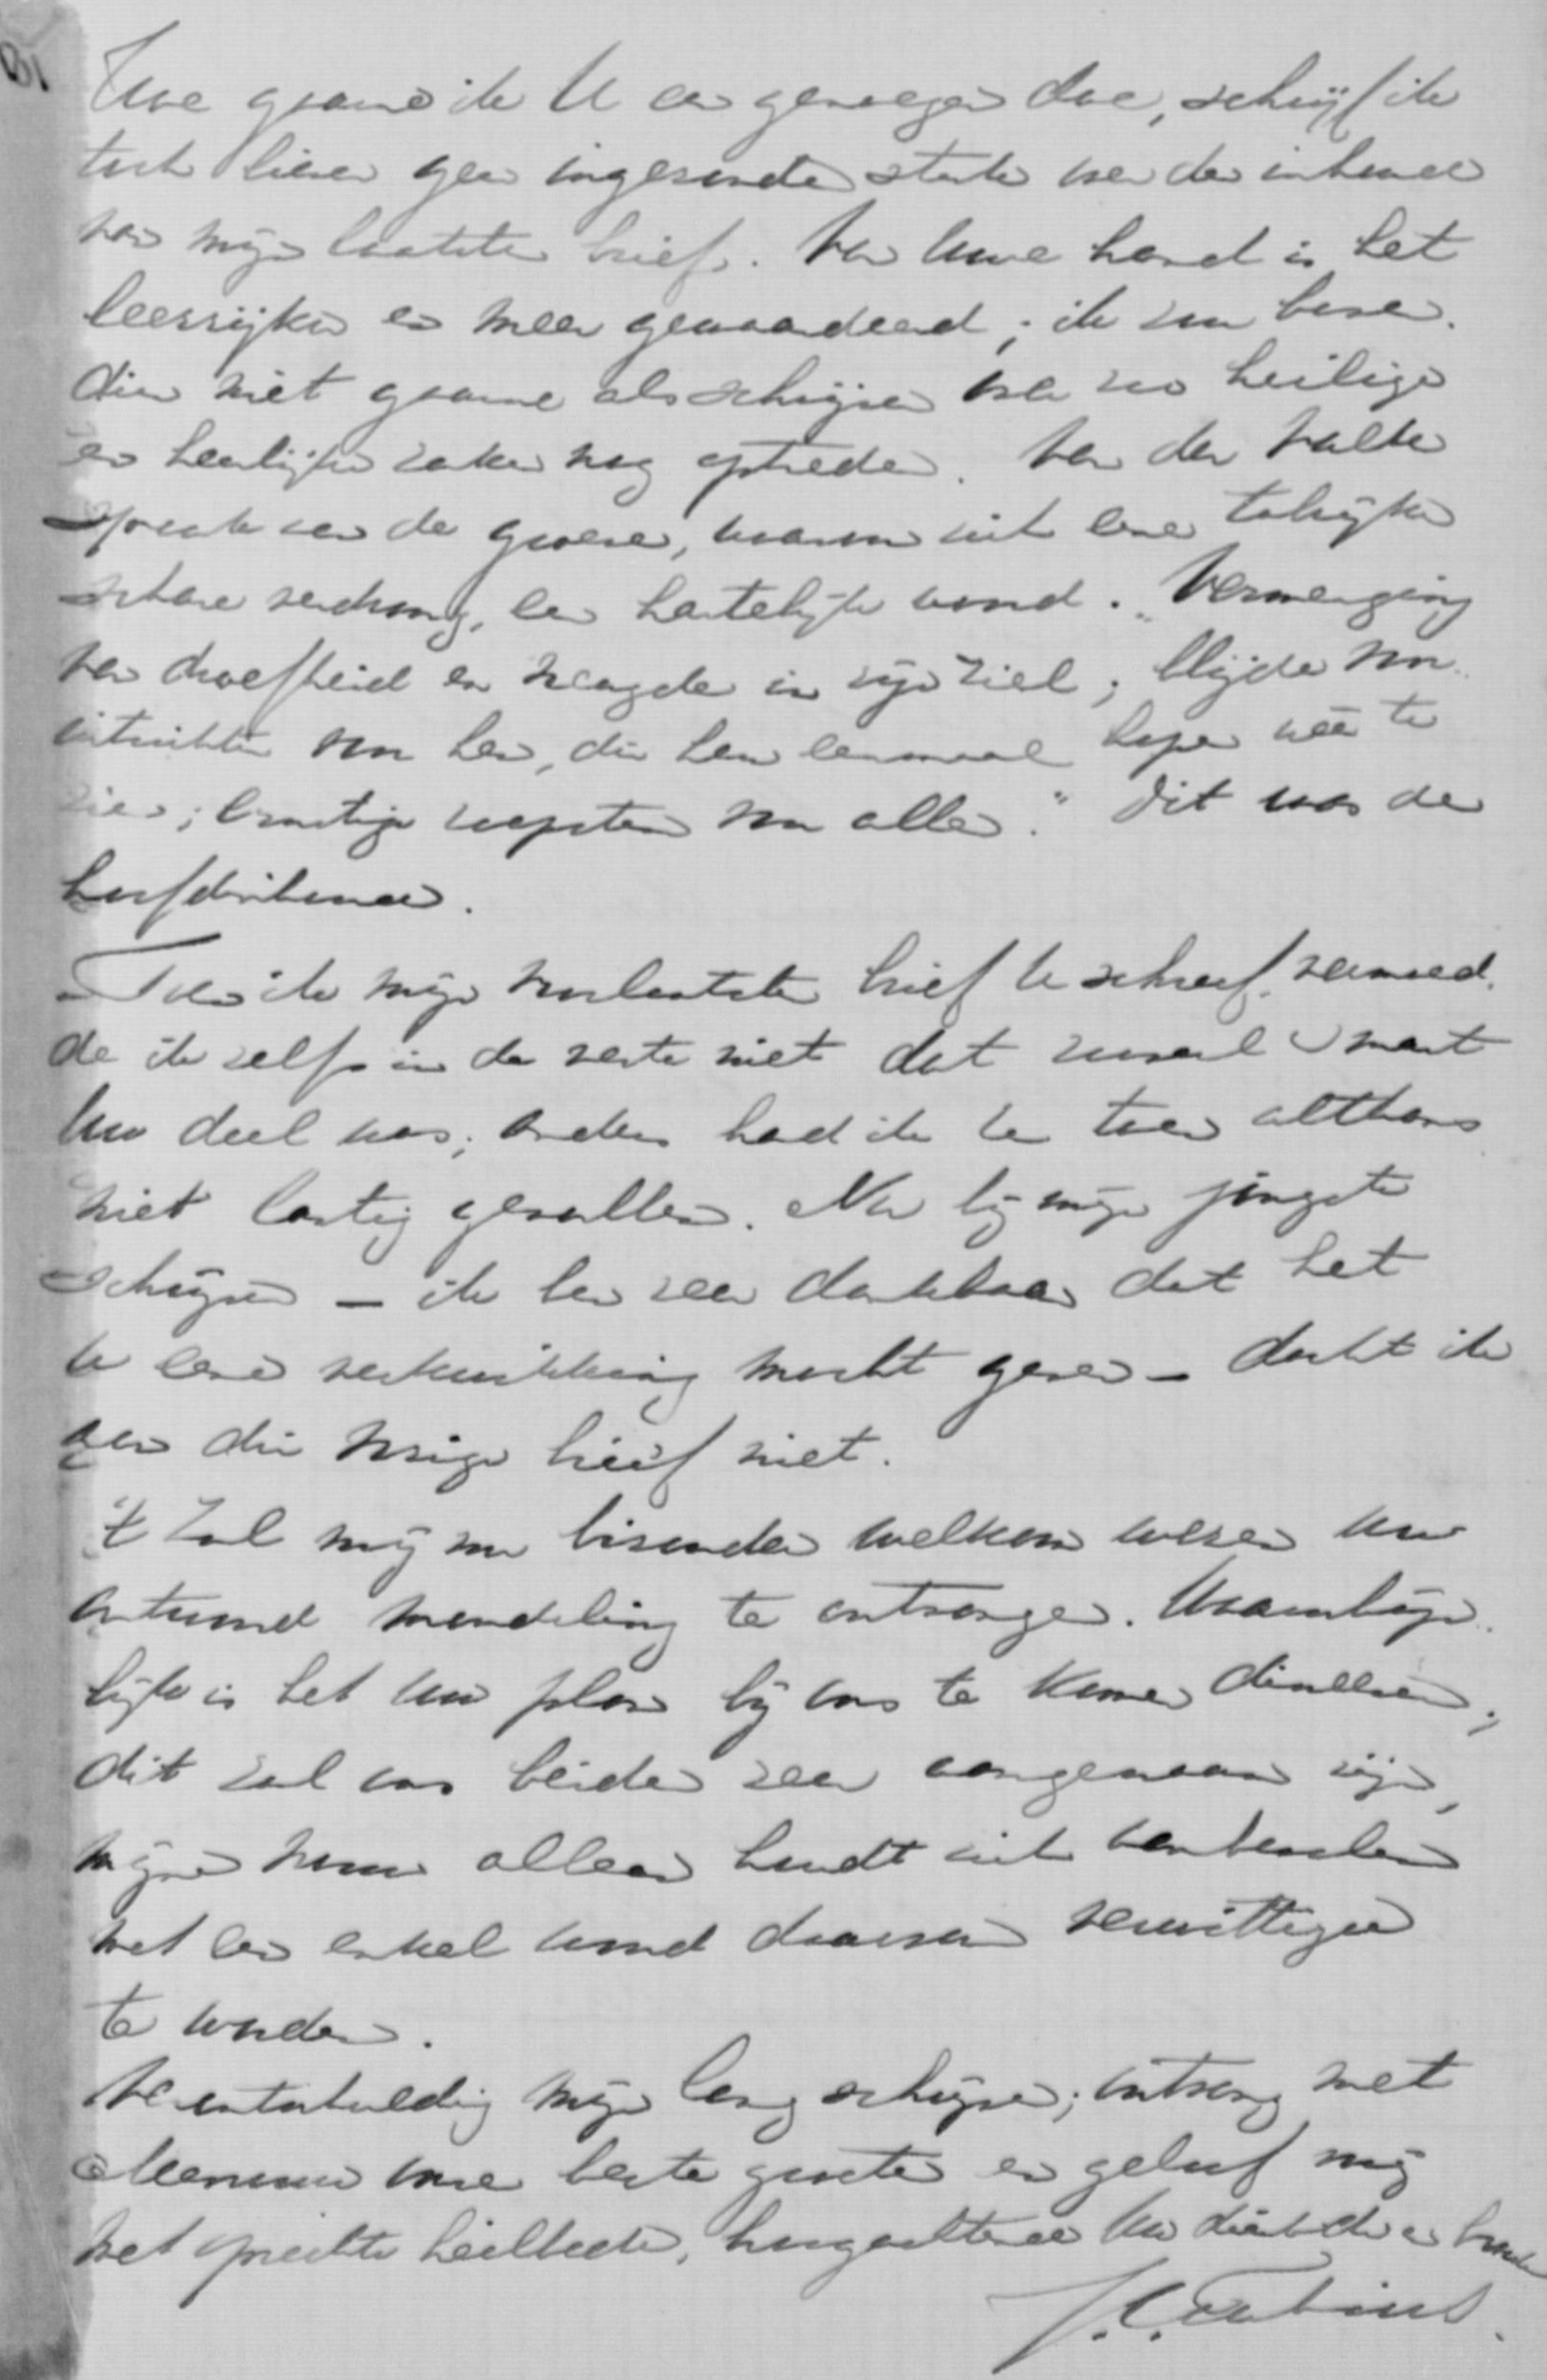 Hoe gaarne ik U een genoegen doe, schrijf ik
toch liever geen ingezonden stuk over den inhoud
van mijn laatsten brief. Van Uwe hand is het
leerrijker en meer gewaardeerd; ik zou boven-
dien niet gaarne als schrijver over zoo heilige
en heerlijke zaken nog optreden. Van der Valk
sprak aan de groeve, waarom zich eene talrijke
schare verdrong, een hartelijk woord. "Vermenging
van droefheid en vreugde in zijn ziel; blijde voor-
uitzichten voor hen, die hem eenmaal hopen weer te
zien; ernstige roepstem voor allen." Dit was de
hoofdinhoud.
Toen ik mijn voorlaatsten brief U schreef, vermoed-
de ik zelfs in de verte niet dat zooveel smart
Uw deel was; anders had ik U toen althans
niet lastig gevallen. Nu bij mijn jongste
schrijven – ik ben zeer dankbaar dat het
U eene verkwikking mocht geven – dacht ik
aan dien vorigen brief niet.
't Zal mij nu bizonder welkom wezen Uw
antwoord mondeling te ontvangen. Waarschijn-
lijk is het Uw plan bij ons te komen dineeren;
dit zal ons beiden zeer aangenaam zijn,
mijne vrouw alleen houdt zich aanbevolen
met een enkel woord daarvan verwittigd
te worden.
Verontschuldig mijn lang schrijven; ontvang met
Mevrouw onze beste groeten en geloof mij
met oprechte heilbede, hoogachtend Uw dienstw. en broeder
J. C. Fabius.